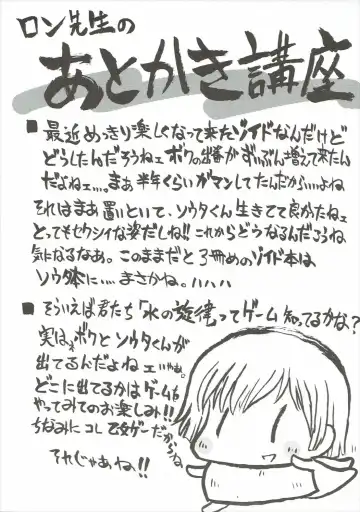 ロン先生の
あとがき講座
■ 最近めっきり楽しくなって来たゾイドなんだけど
どうしたんだろうねェ ボクの出番がずいぶん増えて来たん
だよねェ…。まぁ半年くらいガマンしてたんだから……よね
それはまあ置いといて、ソウタくん生きてて良かったねェ
とってもセクシィな姿だしね!! これからどうなるんだろうね
気になるなあ。このままだと3冊めのゾイド本は
ソウタ本に…まさかね。ハハハ
■ そういえば君たち「水の旋律」ってゲーム知ってるかな?
実はボクとソウタくんが
出てるんだよねェ
どこに出てるかはゲームを
やってみてのお楽しみ!!
ちなみにコレ乙女ゲーだからね
それじゃあね!!